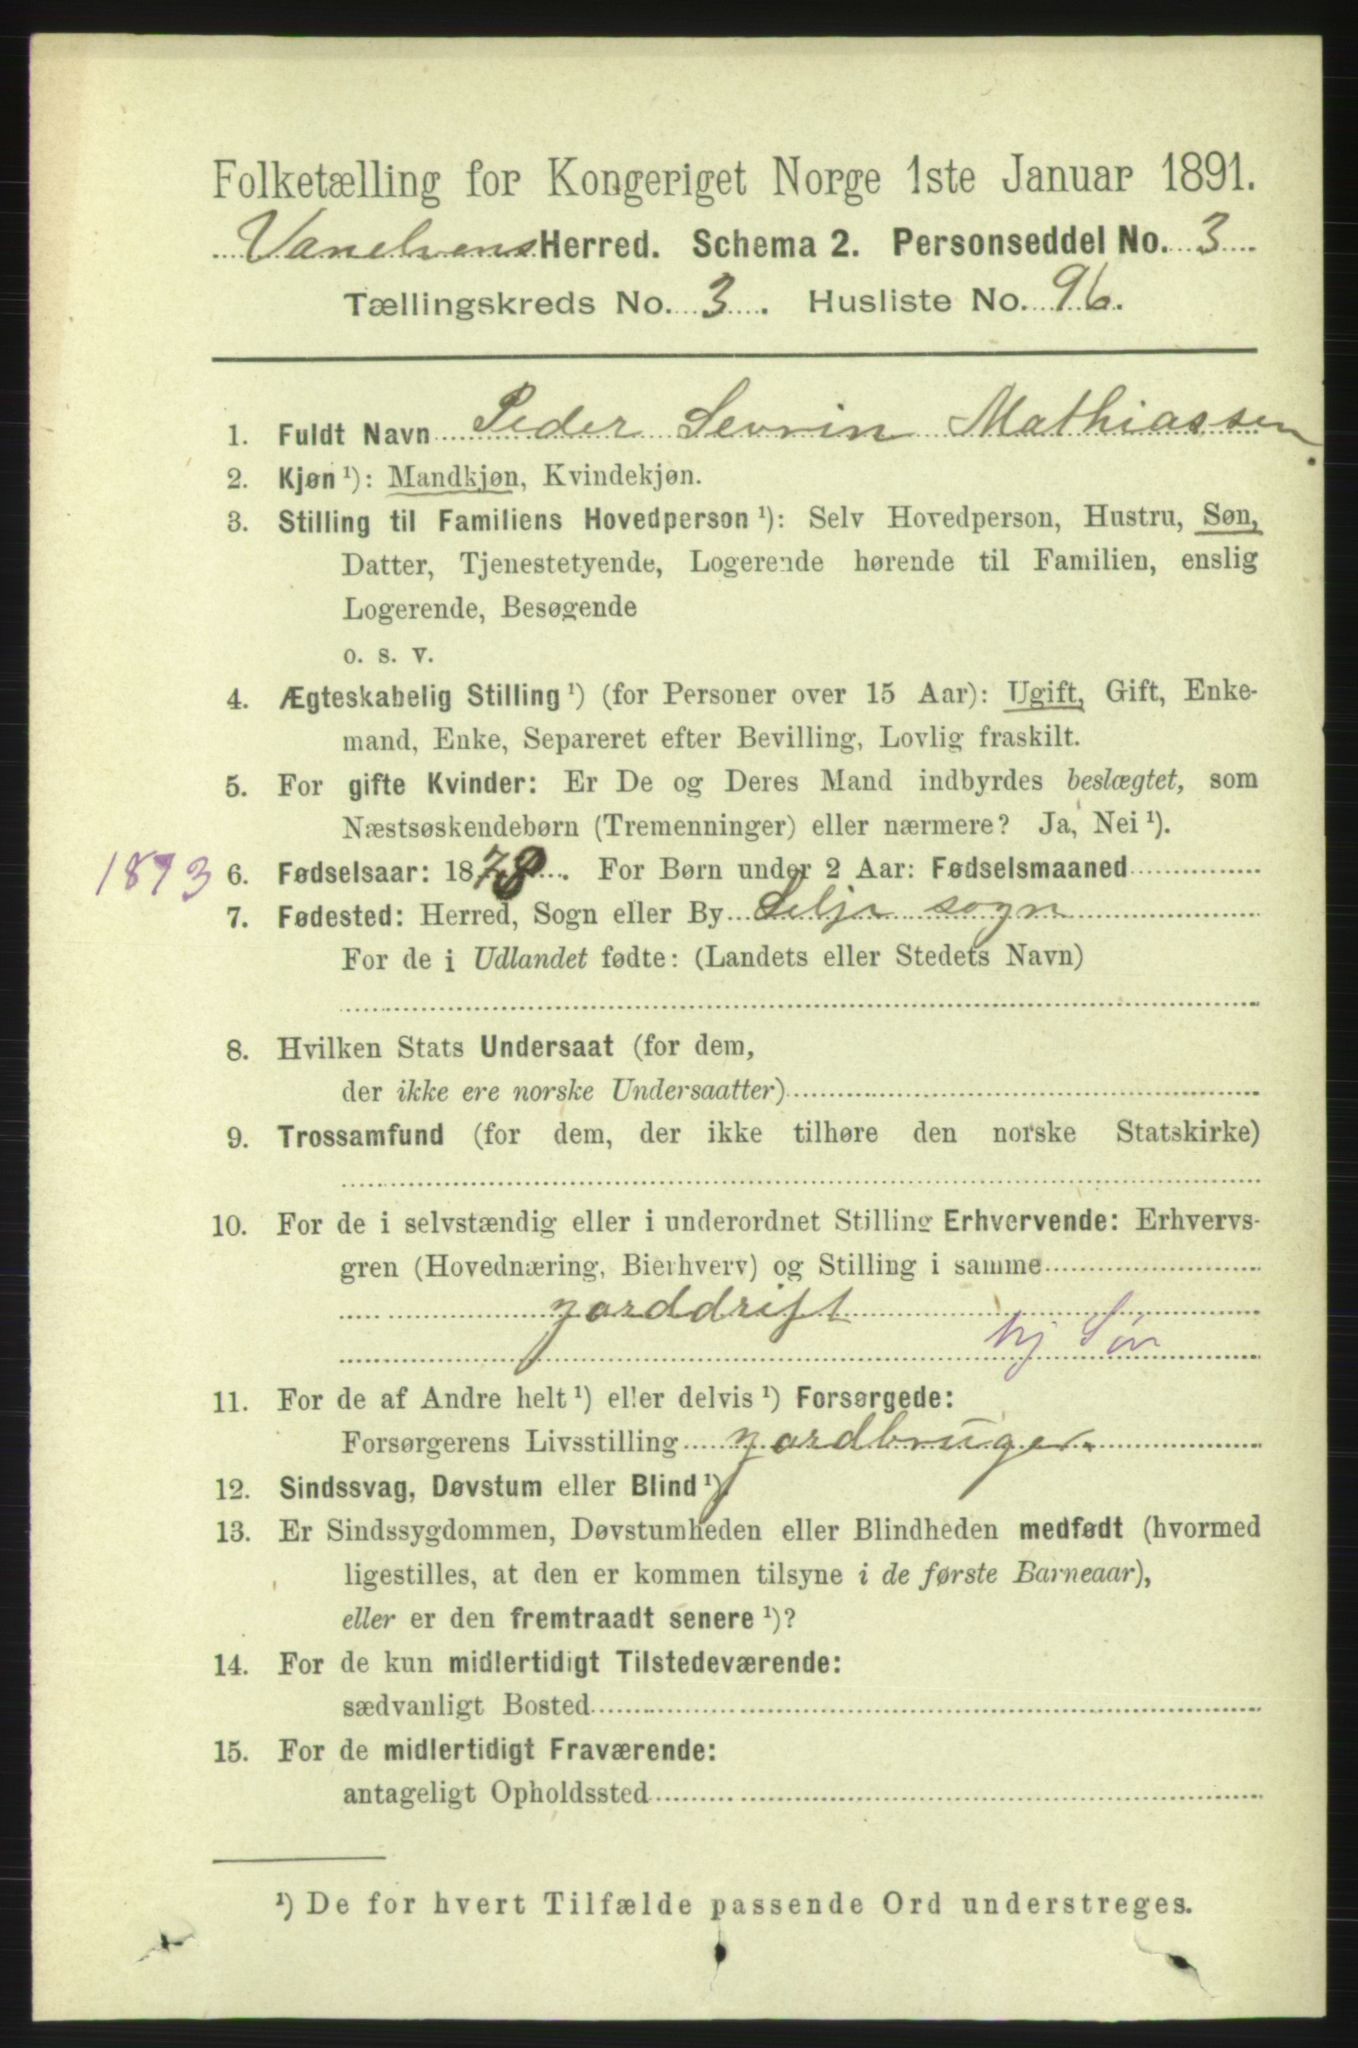 Folketælling for Kongeriget Norge 1ste Januar 1891.
Vanelvens Herred. Schema 2. Personseddel No. 3
Tællingskreds No. 3. Husliste No. 96.
1. Fuldt Navn Peder Sevrin Mathiassen.
2. Kjøn ¹): Mandkjøn, Kvindekjøn.
3. Stilling til Familiens Hovedperson ¹): Selv Hovedperson, Hustru, Søn,
Datter, Tjenestetyende, Logerende hørende til Familien, enslig
Logerende, Besøgende
o. s. v.
4. Ægteskabelig Stilling ¹) (for Personer over 15 Aar): Ugift, Gift, Enke-
mand, Enke, Separeret efter Bevilling, Lovlig fraskilt.
5. For gifte Kvinder: Er De og Deres Mand indbyrdes beslægtet, som
Næstsøskendebørn (Tremenninger) eller nærmere? Ja, Nei ¹).
1873 6. Fødselsaar: 18 . For Børn under 2 Aar: Fødselsmaaned
7. Fødested: Herred, Sogn eller By Selje sogn
For de i Udlandet fødte: (Landets eller Stedets Navn)
8. Hvilken Stats Undersaat (for dem,
der ikke ere norske Undersaatter)
9. Trossamfund (for dem, der ikke tilhøre den norske Statskirke)
10. For de i selvstændig eller i underordnet Stilling Erhvervende: Erhvervs-
gren (Hovednæring, Bierhverv) og Stilling i samme
garddrift
hj Søn
11. For de af Andre helt ¹) eller delvis ¹) Forsørgede:
Forsørgerens Livsstilling gardbruger.
12. Sindssvag, Døvstum eller Blind ¹).
13. Er Sindssygdommen, Døvstumheden eller Blindheden medfødt (hvormed
ligestilles, at den er kommen tilsyne i de første Barneaar),
eller er den fremtraadt senere ¹)?
14. For de kun midlertidigt Tilstedeværende:
sædvanligt Bosted
15. For de midlertidigt Fraværende:
antageligt Opholdssted
¹) De for hvert Tilfælde passende Ord understreges.